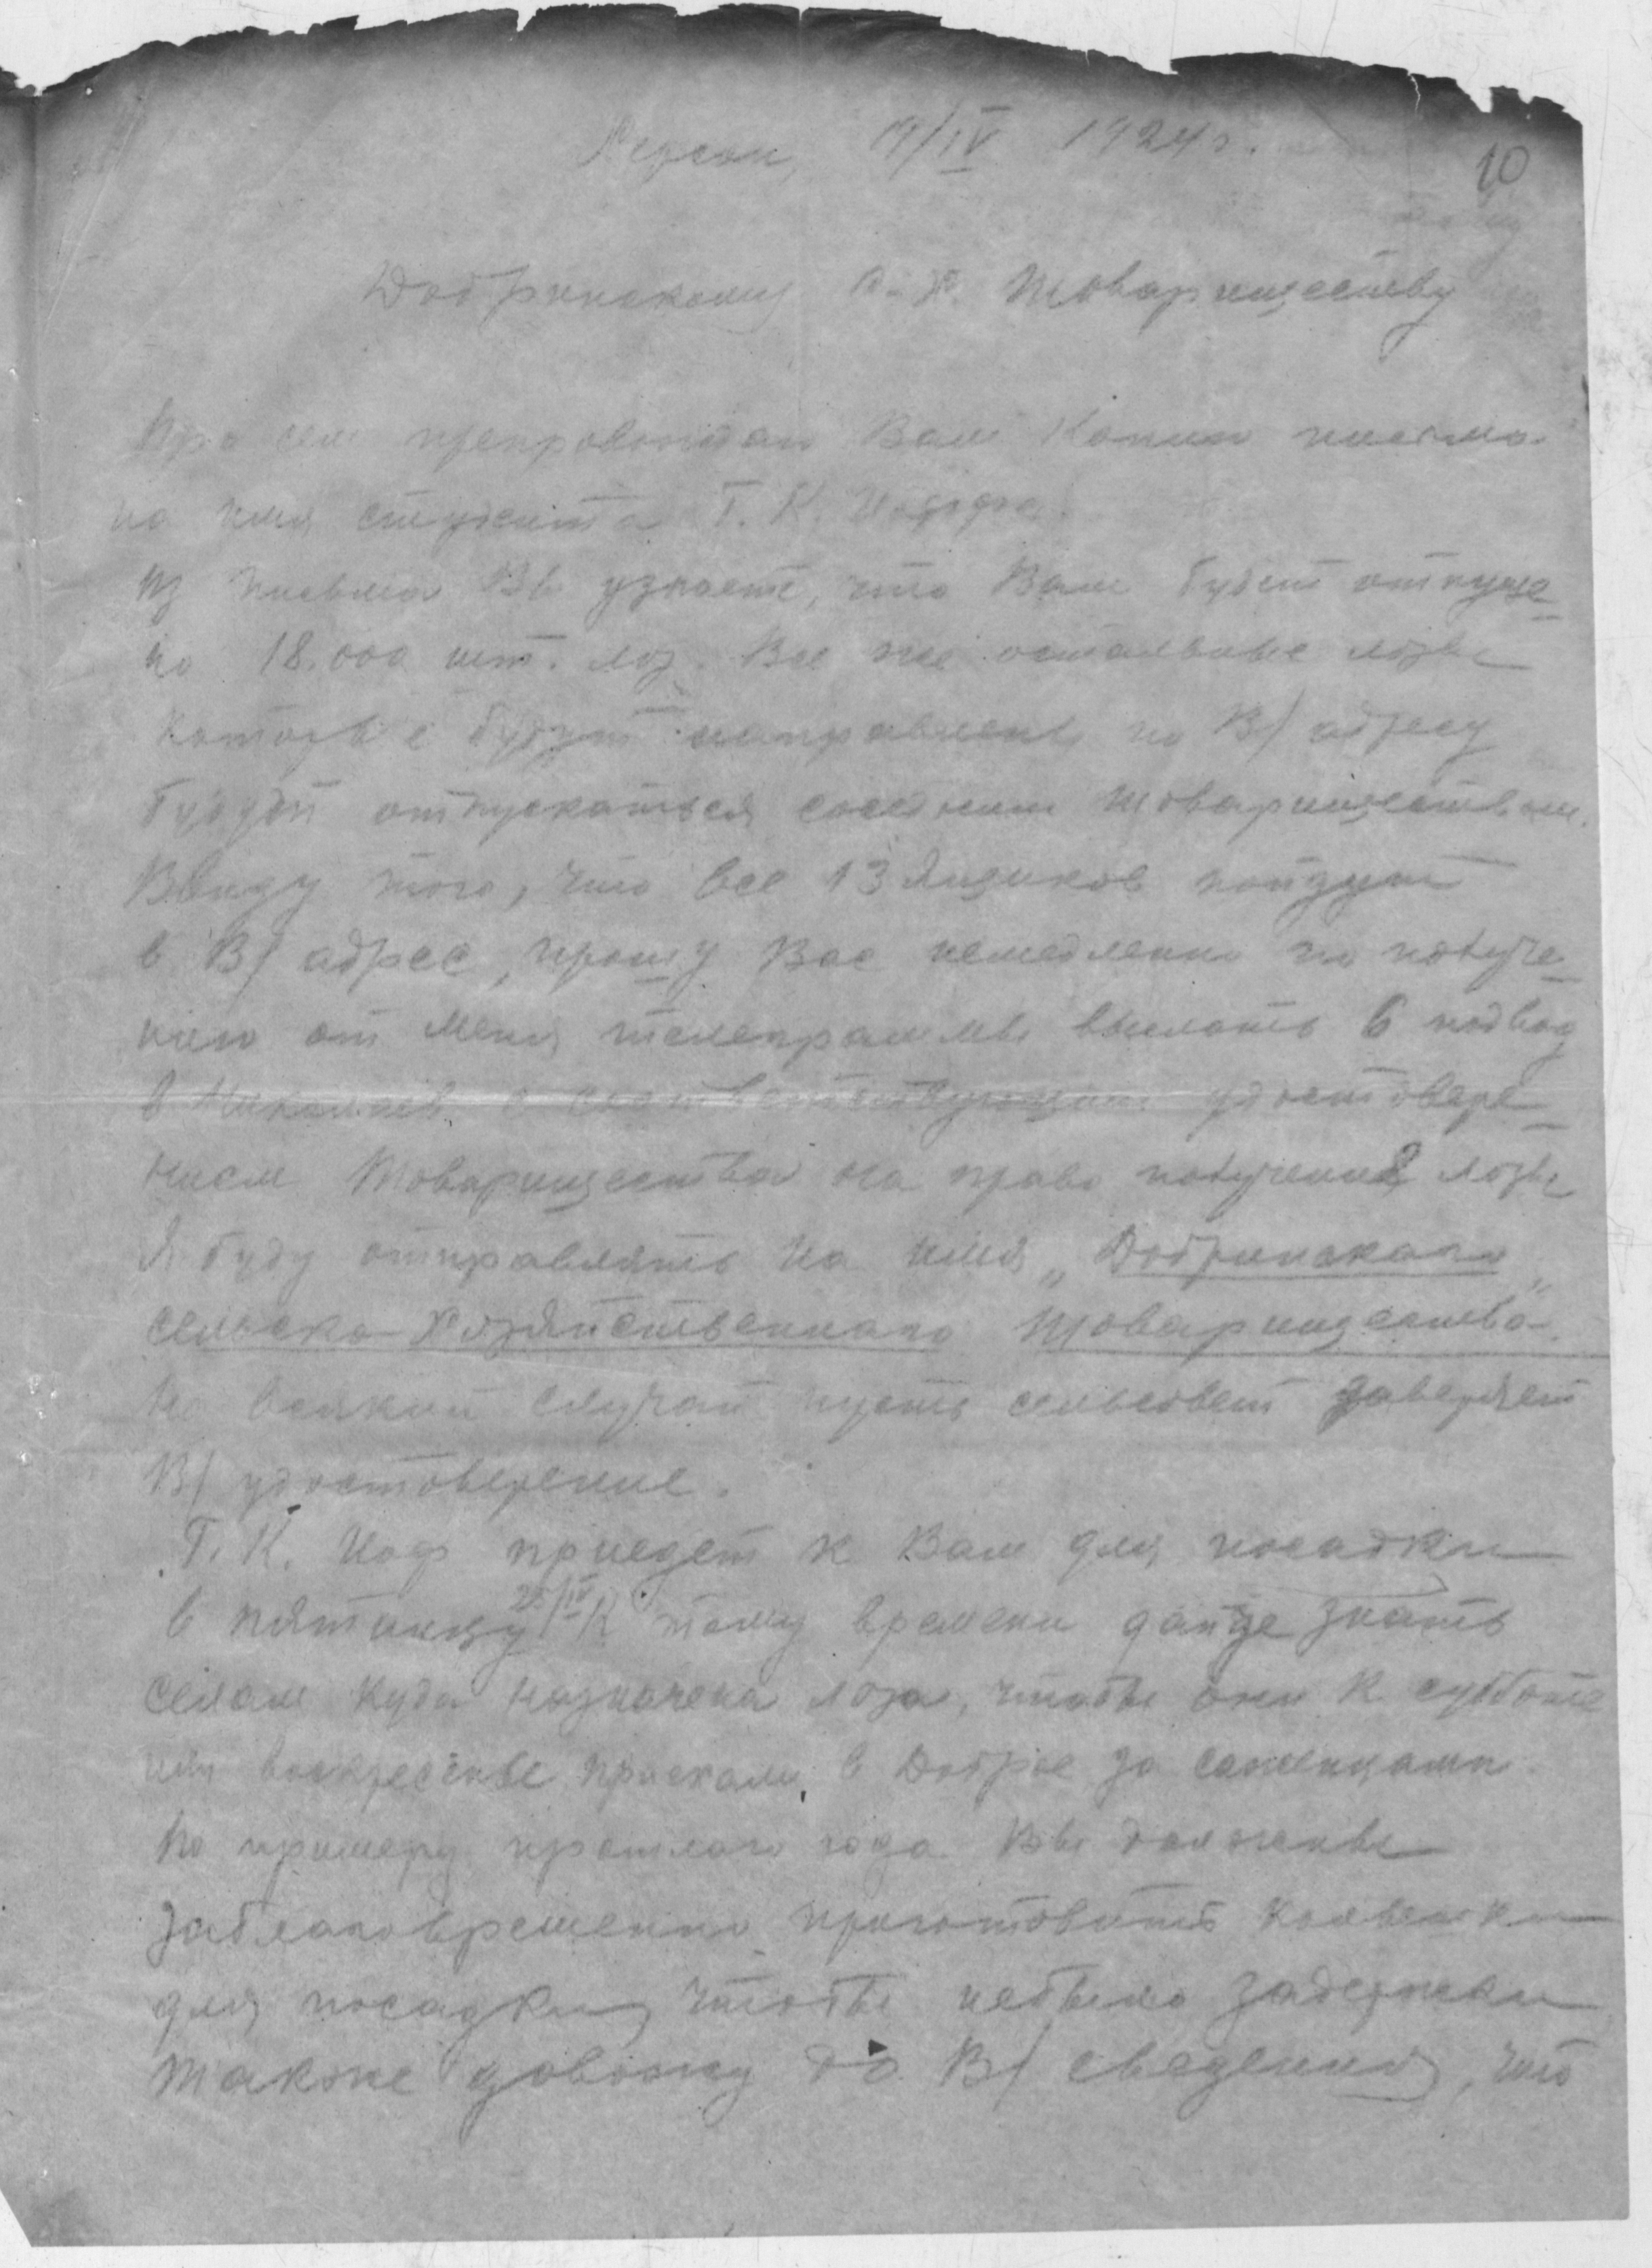 Херсон, 19/IV 1924 г.
10
Добринскому с-х. товариществу
При сем препровождаю Вам копию письма
на имя студента Т. К. Иоффа.
Из письма Вы узнаете, что Вам будет отпуще-
но 18.000 шт. лоз. Все же остальные лозы
которые будут направлены по В/ адресу
будут отпускаться соседним товариществам.
Ввиду того, что все 13 ящиков пойдут
в В/ адрес, прошу Вас немедленно по получе-
нию от меня телеграммы выслать 6 подвод
в Николаев с соответствующим удостовере-
нием товарищества на право получения лозы
Я буду отправлять на имя „Добринскаго
сельско-хозяйственнаго товарищества".
На всякий случай пусть сельсовет заверяет
В/ удостоверение.
Т. К. Иоф приедет к Вам для посадки
в пятницу 25/IV К тому времени дайте знать
селам куда назначена лоза, чтобы они к субботе
или воскресенье приехали в Доброе за саженцами.
По примеру прошлаго года Вы должны
заблаговременно приготовить колышки
для посадки, чтобы небыло задержки
также довожу до В/ сведения, что